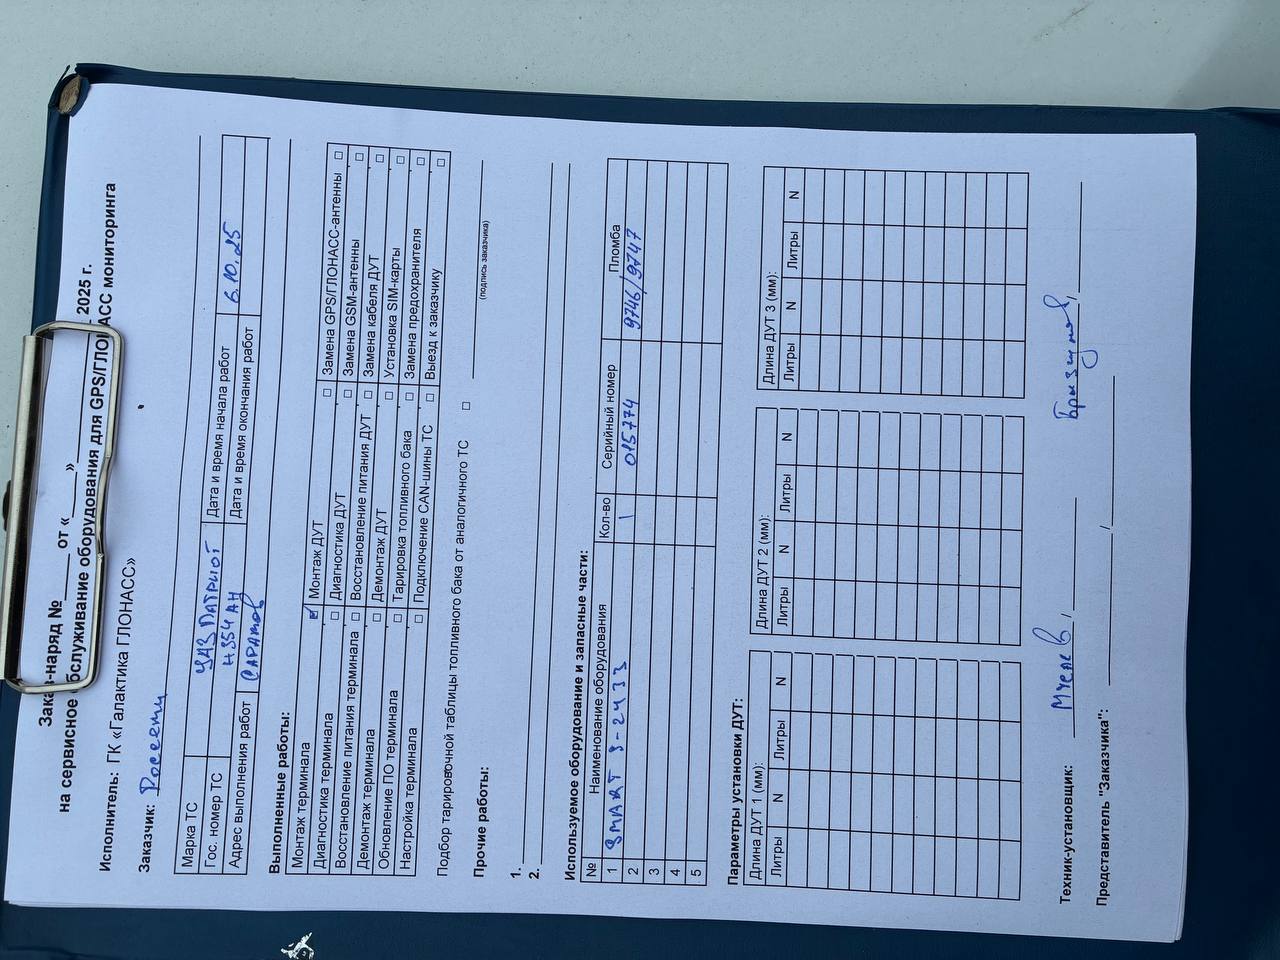 Заказ-наряд № от « » 2025 г.
на сервисное обслуживание оборудования для GPS/ГЛОНАСС мониторинга
Исполнитель: ГК «Галактика ГЛОНАСС»
Заказчик: Россети
Марка ТС УАЗ ПАТРИОТ Дата и время начала работ 6.10.25
Гос. номер ТС Н354АН Дата и время окончания работ
Адрес выполнения работ САРАТОВ
Выполненные работы:
Монтаж терминала ☑ Монтаж ДУТ ☐ Замена GPS/ГЛОНАСС-антенны ☐
Диагностика терминала ☐ Диагностика ДУТ ☐ Замена GSM-антенны ☐
Восстановление питания терминала ☐ Восстановление питания ДУТ ☐ Замена кабеля ДУТ ☐
Демонтаж терминала ☐ Демонтаж ДУТ ☐ Установка SIM-карты ☐
Обновление ПО терминала ☐ Тарировка топливного бака ☐ Замена предохранителя ☐
Настройка терминала ☐ Подключение CAN-шины ТС ☐ Выезд к заказчику ☐
Подбор тарировочной таблицы топливного бака от аналогичного ТС ☐
(подпись заказчика)
Прочие работы:
1.
2.
Используемое оборудование и запасные части:
№ Наименование оборудования Кол-во Серийный номер Пломба
1 SMART S-2433 1 015774 9746/9747
2
3
4
5
Параметры установки ДУТ:
Длина ДУТ 1 (мм): Длина ДУТ 2 (мм): Длина ДУТ 3 (мм):
Литры N Литры N Литры N Литры N Литры N Литры N
Техник-установщик: / /
Представитель "Заказчика": /